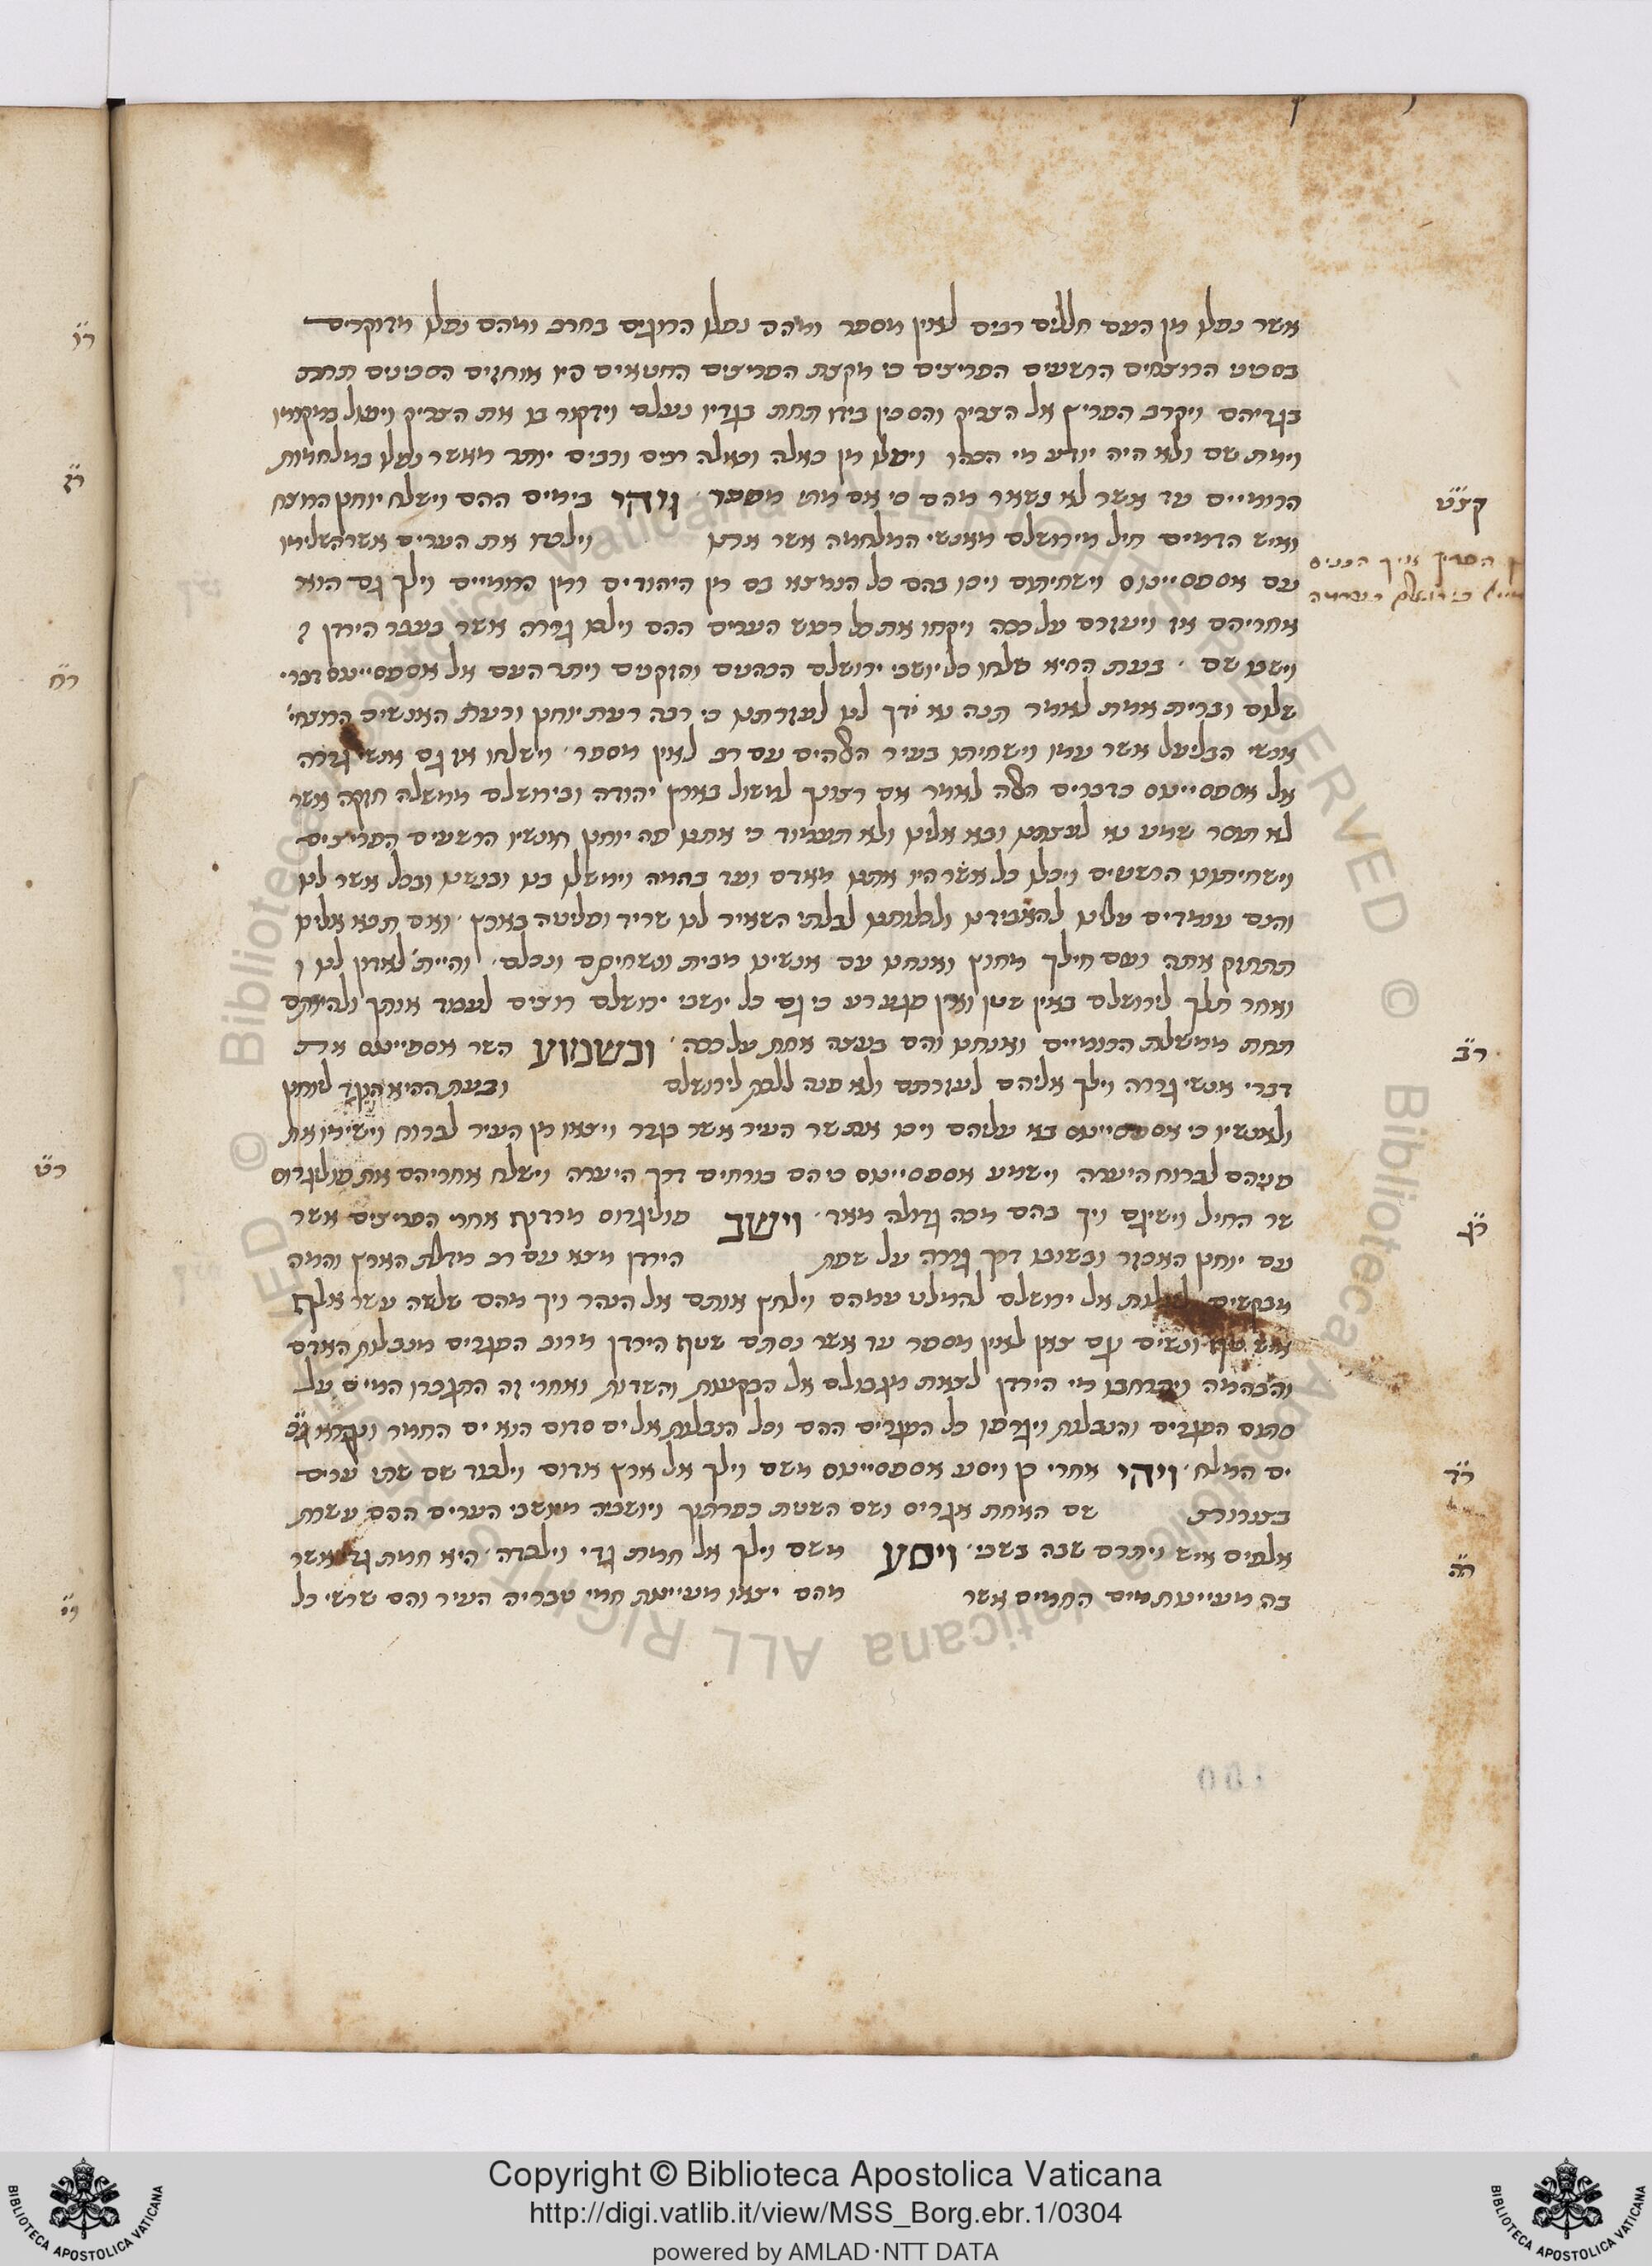 אשר נפלו מן העם חללים רבים לאין מספר ומהם נפלו הרוגים בחרב ומהם נפלו מדוקרים
בסכיני הרוצחים הרשעים הפריצים כי מקצת הפריצים החטאים היו אוחזים הסכינים תחת
בגדיהם ויקרב הפריץ אל הצדיק והסכין בידו תחת בגדיו נעלם וידקור בו את הצדיק ויפול במקומו
וימת שם ולא היה יודע מי הכהו ויפלו מן כאלה וכאלה רבים ורבים יותר מאשר נפלו במלחמות
הרומיים עד אשר לא נשאר מהם כי אם מתי מספר ויהי בימים ההם וישלח יוחנן הרוצח
ואיש הדמים חיל מירושלם מאנשי המלחמה אשר אתו וילכדו את הערים אשר השלימו
עם אספסיינוס וישחיתום ויכו בהם כל הנמצא בם מן היהודים ומן הרומיים וילך גם הוא
אחריהם אז ויעזרם על ככה ויקחו את כל רכוש הערים ההם וילכו גדרה אשר בעבר הירדן
וישבו שם בעת ההיא שלחו כל יושבי ירושלם הכהנים והזקנים ויתר העם אל אספסיינוס דברי
שלום וברית אמת לאמר הנה נא ידך לנו לעזרתנו כי רבה רעת יוחנן ורעת האנשים הרוצחי'
אנשי הבליעל אשר עמו וישחיתו בעיר האלהים עם רב לאין מספר וישלחו אז גם אנשי גדרה
אל אספסיינוס כדברים האלה לאמר אם רצונך למשול בארץ יהודה ובירושלם ממשלה חזקה אשר
לא תוסר שמע נא לעצתנו ובא אלינו ולא תעמוד כי אתנו פה יוחנן ואנשיו הרשעים הפריצים
וישחיתונו הרשעים ויכלו כל אשר היו אתנו מאדם ועד בהמה וימשלו בנו ובנשינו ובכל אשר לנו
והנם עומדים עלינו להאבידנו ולכלותנו לבלתי השאיר לנו שריד ופליטה בארץ ואם תבא אלינו
תתחזק אתה ועם חילך מחוץ ואנחנו עם אנשינו מבית ונשחיתם ונכלם והיית' לאדון לנו
ואחר תלך לירושלם באין שטן ואין פגע רע כי גם כל יושבי ירושלם רוצים לעבוד אותך ולהיותם
תחת ממשלת הרומיים ואנחנו והם בעצה אחת על ככה ובשמוע השר אספסיינוס את
דברי אנשי גדרה וילך אליהם לעזרתם ולא פנה ללכת לירושלם ובעת ההיא הוגד ליוחנן
ולאנשיו כי אספסיינוס בא עליהם ויכו את שר העיר אשר כובד ויצאו מן העיר לברוח וישימו את
פניהם לברוח היערה וישמע אספסיינוס כי הם בורחים דרך היערה וישלח אחריהם את פולוגדרוס
שר החיל וישיגם ויך בהם מכה גדולה מאד וישב פולוגדרוס מרדוף אחרי הפריצים אשר
עם יוחנן האכזר ובשובו דרך גדרה על שפת הירדן מצא עם רב מדלת הארץ והמה
מבקשים לעלות אל ירושלם להמלט עמהם וילחץ אותם אל הנהר ויך מהם שלשה עשר אלף
איש וטף ונשים וגם צאן לאין מספר עד אשר נסתם שטף הירדן מרוב הפגרים מנבלות האדם
והבהמה ויתרחבו מי הירדן לצאת מגבולם אל הבקעות והשדות ואחרי זה התגברו המים על
סתום הפגרים והנבלות ויגרפו כל הפגרים ההם וכל הנבלות אל ים סדום הוא ים החמר ונקרא גם
ים המלח ויהי אחרי כן ויסע אספסיינוס משם וילך אל ארץ אדום וילכוד שם שתי ערים
בצורות שם האחת אגריס ושם השנית כפרתך ויושבי' מיושבי הערים ההם עשרת
אלפים איש ויתרם שבה בשבי ויסע משם וילך אל חמת גדי וילכדה היא חמת גדי אשר
בה מעיינות מים החמים אשר מהם יצאו מעיינות חמי טבריה העיר והם שרשי כל
קצ״ט
ר״ב
ר״ג
ר״ד
ר״ה
ר״ו
ר״ז
ר״ח
ר״ט
ר״י
Copyright © Biblioteca Apostolica Vaticana
http://digi.vatlib.it/view/MSS_Borg.ebr.1/0304
powered by AMLAD·NTT DATA
BIBLIOTECA APOSTOLICA VATICANA
BIBLIOTECA APOSTOLICA VATICANA